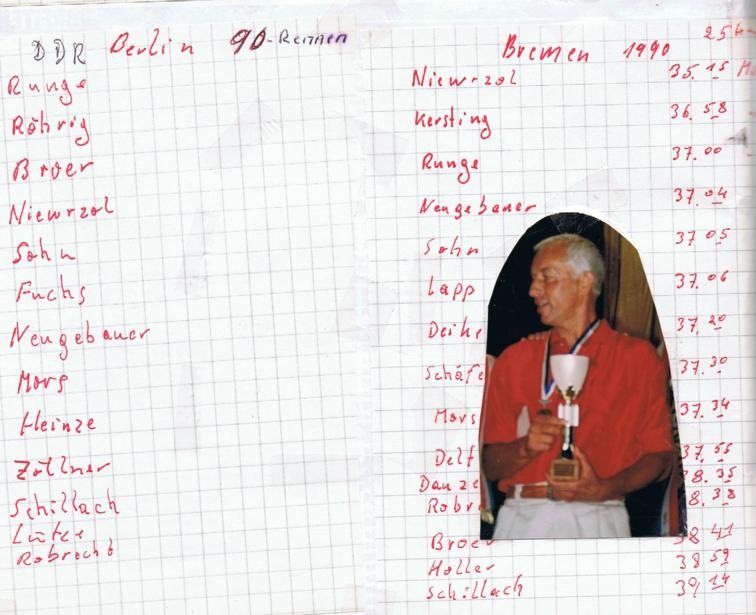 DDR Berlin 90-Rennen
Runge
Röhrig
Broer
Niewrzol
Sohn
Fuchs
Neugebauer
Mors
Heinze
Zöllner
Schillach
Lütke
Robrecht
Bremen 1990
Niewrzol 35.15
Kersting 36.58
Runge 37.00
Neugebauer 37.04
Sohn 37 05
Lapp 37.06
Deike 37.20
Schäfe 37.30
Mors 37.34
Delf 37.55
Danze 8.35
Robr 8.38
Broer 38 41
Holler 38 59
Schillach 39/14